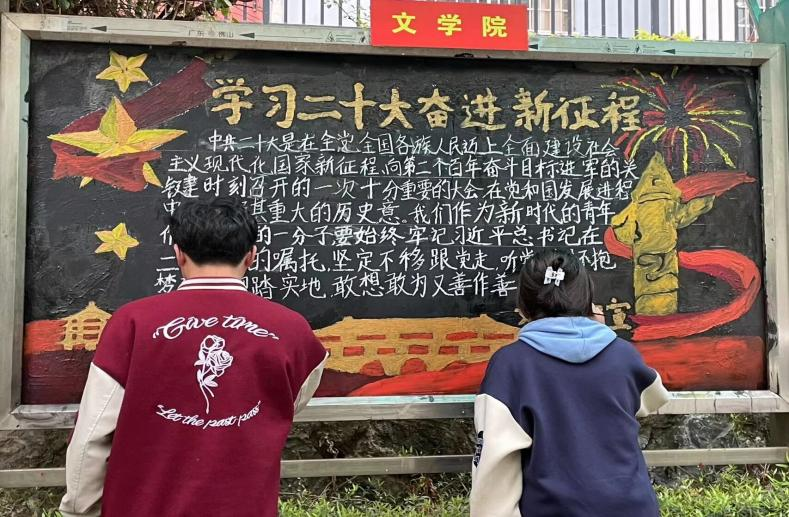 广东 佛山
文学院
学习二十大奋进新征程
中共二十大是在全党全国各族人民迈上全面建设社会
主义现代化国家新征程,向第二个百年奋斗目标进军的关
键时刻召开的一次十分重要的大会,在党和国发展进程
中 其重大的历史意。我们作为新时代的青年
的一分子要始终牢记习近平总书记在
二 的嘱托,坚定不移跟党走,听 怀抱
梦 脚踏实地,敢想敢为又善作善
宣
"Give time"
"Let the past pass"